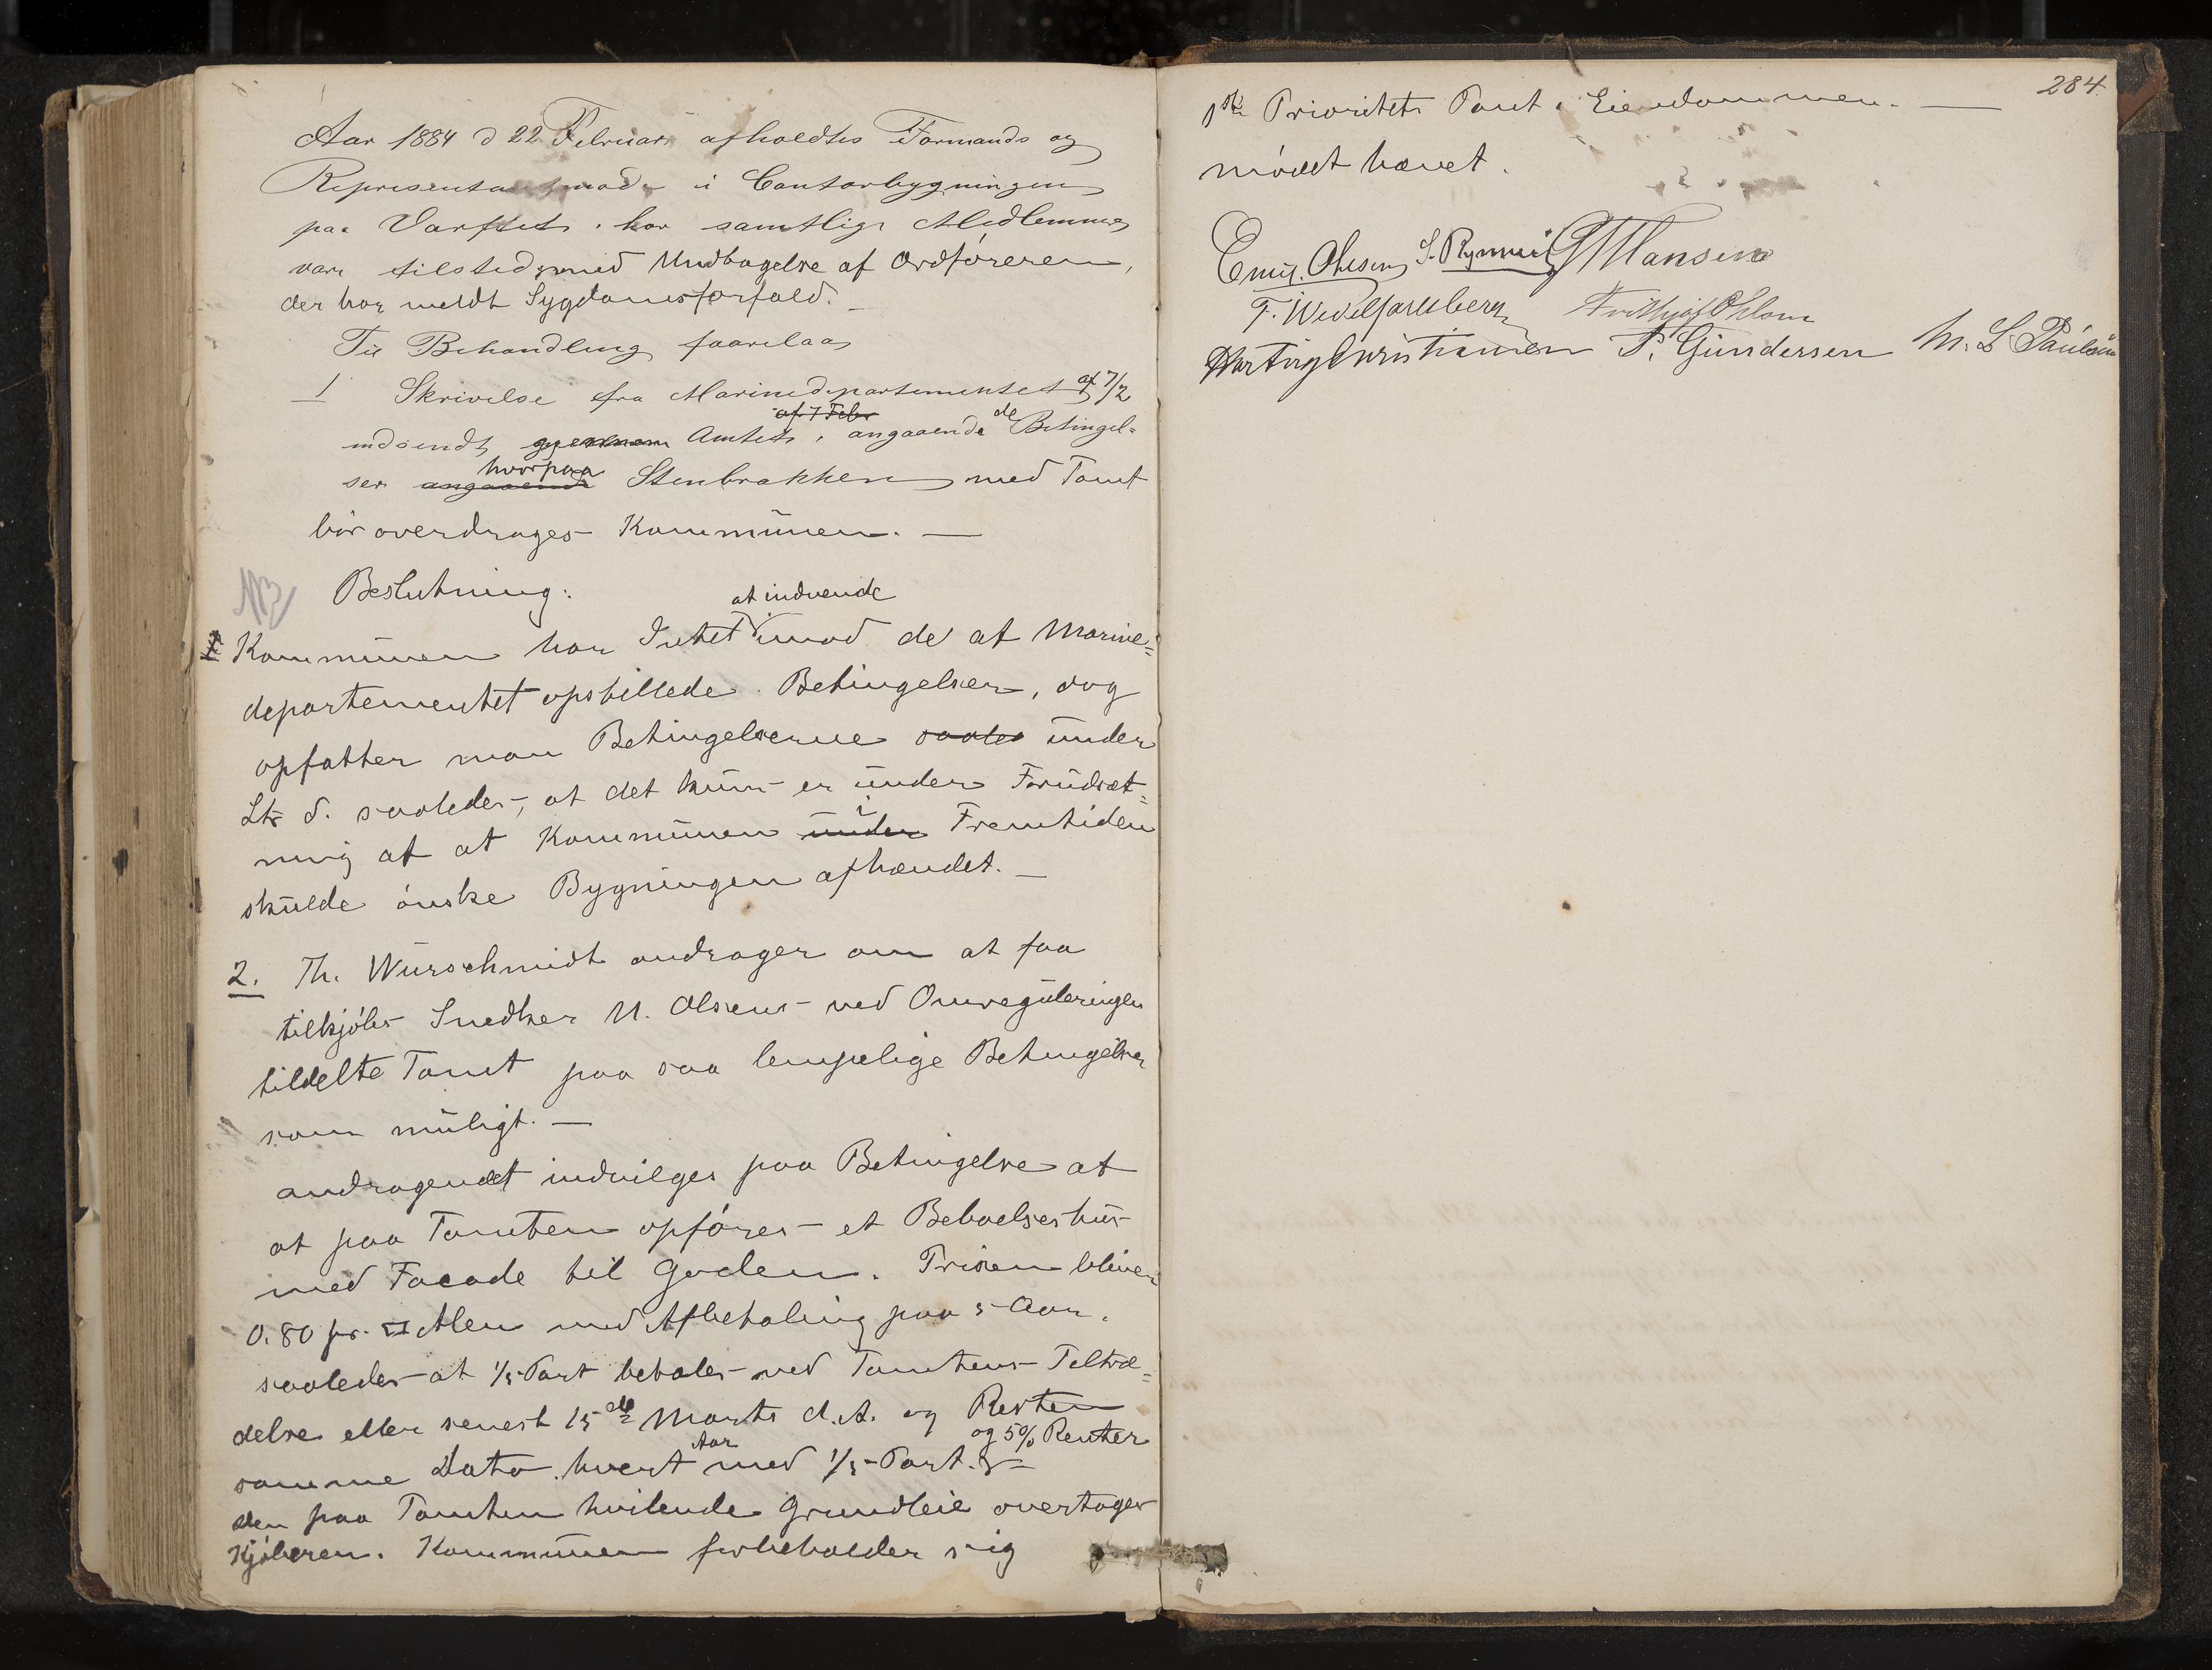 Aar 1884 d 22 Februar afholdtes Formands og
Representantmøde i Contorbygningen
paa Varftet, hvor samtlige Medlemmer
vare tilstede med Undtagelse af Ordføreren,
der har meldt Sygdomsforfald. –
Til Behandling forelaa
1 Skrivelse fra Marinedepartementet af 7/2
af 7 Febr
indsendt gjennem Amtet, angaaende de Betingel-
hvorpaa
ser angaaende Stenbrakken med Tomt
bør overdrages Kommunen. —
NB
Beslutning:
at indvende
1 Kommunen har Intet imod de af Marine-
departementet opstillede Betingelser, dog
opfatter man Betingelserne saales under
Ltr d. saaledes, at det kun er under Forudsæt-
i
ning af at Kommunen under Fremtiden
skulde ønske Bygningen afhændet. –
2. Th. Würschmidt andrager om at faa
tilkjøbs Snedker N. Olsens ved Omreguleringen
tildelte Tomt paa saa lempelige Betingelser
som muligt. —
andragendet indvilges paa Betingelse at
at paa Tomten opføres et Beboelseshus
med Facade til Gaden. Prisen bliver
0.80 pr. □ Alen med Afbetaling paa 5 Aar,
saaledes at 1/5 Part betales ved Tomtens Tiltræ-
delse eller senest 15de Marts d.A. og Resten
Aar og 5% Renter
samme Dato hvert med 1/5 Part.
den paa Tomten hvilende Grundleie overtager
Kjøberen. Kommunen forbeholder sig
284
1ste Prioritets Pant i Eiendommen. —
mødet hævet.
Emil Olsen S. Rynning G M Hansen
F. Wedel Jarlsberg Frithjof Ohlsen
Hartvig Christiansen P. Gundersen M. L. Paulsen